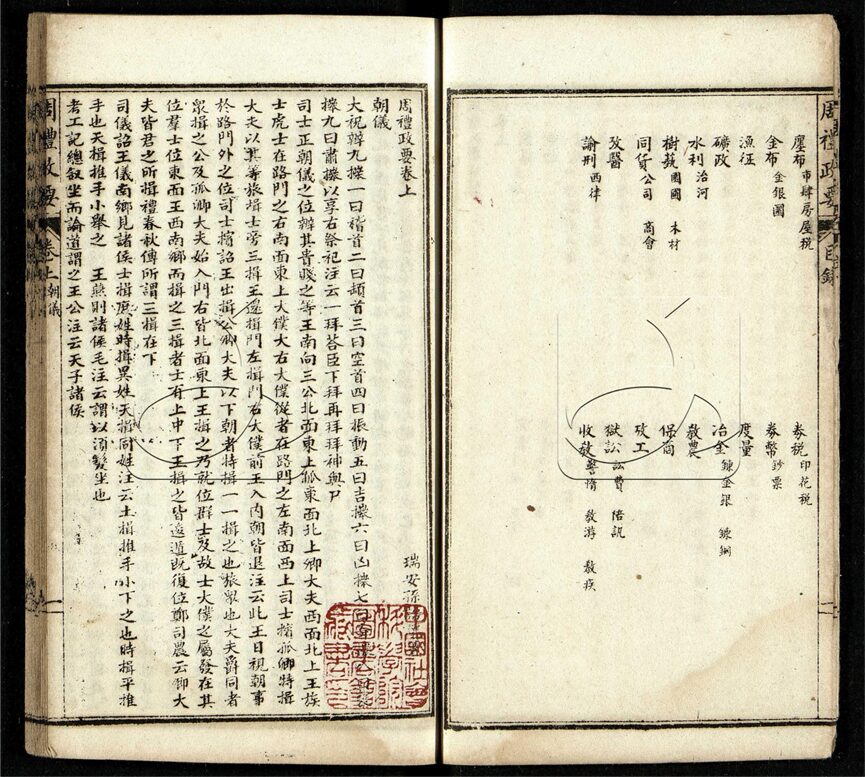 周禮政要 目錄
廛布 市肆房屋稅 券稅 印花稅
金布 金銀圜 券幣 鈔票
漁征 度量
礦政 冶金 鍊金銀 鍊鋼
水利 治河 教農
樹蓺 園圃 木材 保商
同貨 公司 商會 攷工
攷醫 獄訟 訟費 陪訊
諭刑 西律 收教 警惰 教游 教疾
周禮政要卷上 瑞安孫
朝儀
大祝辨九𢷎一曰稽首二曰頓首三曰空首四曰振動五曰吉𢷎六曰凶𢷎七曰
𢷎九曰肅𢷎以享右祭祀注云一拜荅臣下拜再拜拜神與尸
司士正朝儀之位辨其貴賤之等王南向三公北面東上孤東面北上卿大夫西面北上王族
士虎士在路門之右南面東上大僕大右大僕從者在路門之左南面西上司士擯孤卿特揖
大夫以其等旅揖士旁三揖王還揖門左揖門右大僕前王入內朝皆退注云此王日視朝事
於路門外之位司士擯詔王出揖公卿大夫以下朝者特揖一一揖之也旅衆也大夫爵同者
衆揖之公及孤卿大夫始入門右皆北面東上王揖之乃就位群士及故士大僕之屬發在其
位羣士位東面王西南鄉而揖之三揖者士有上中下王揖之皆逡遁既復位鄭司農云卿大
夫皆君之所揖禮春秋傳所謂三揖在下
司儀詔王儀南鄉見諸侯士揖庶姓時揖異姓天揖同姓注云土揖推手小下之也時揖平推
手也天揖推手小舉之 王燕則諸侯毛注云謂以須髮坐也
考工記總叙坐而論道謂之王公注云天子諸侯
周禮政要 卷上 朝儀